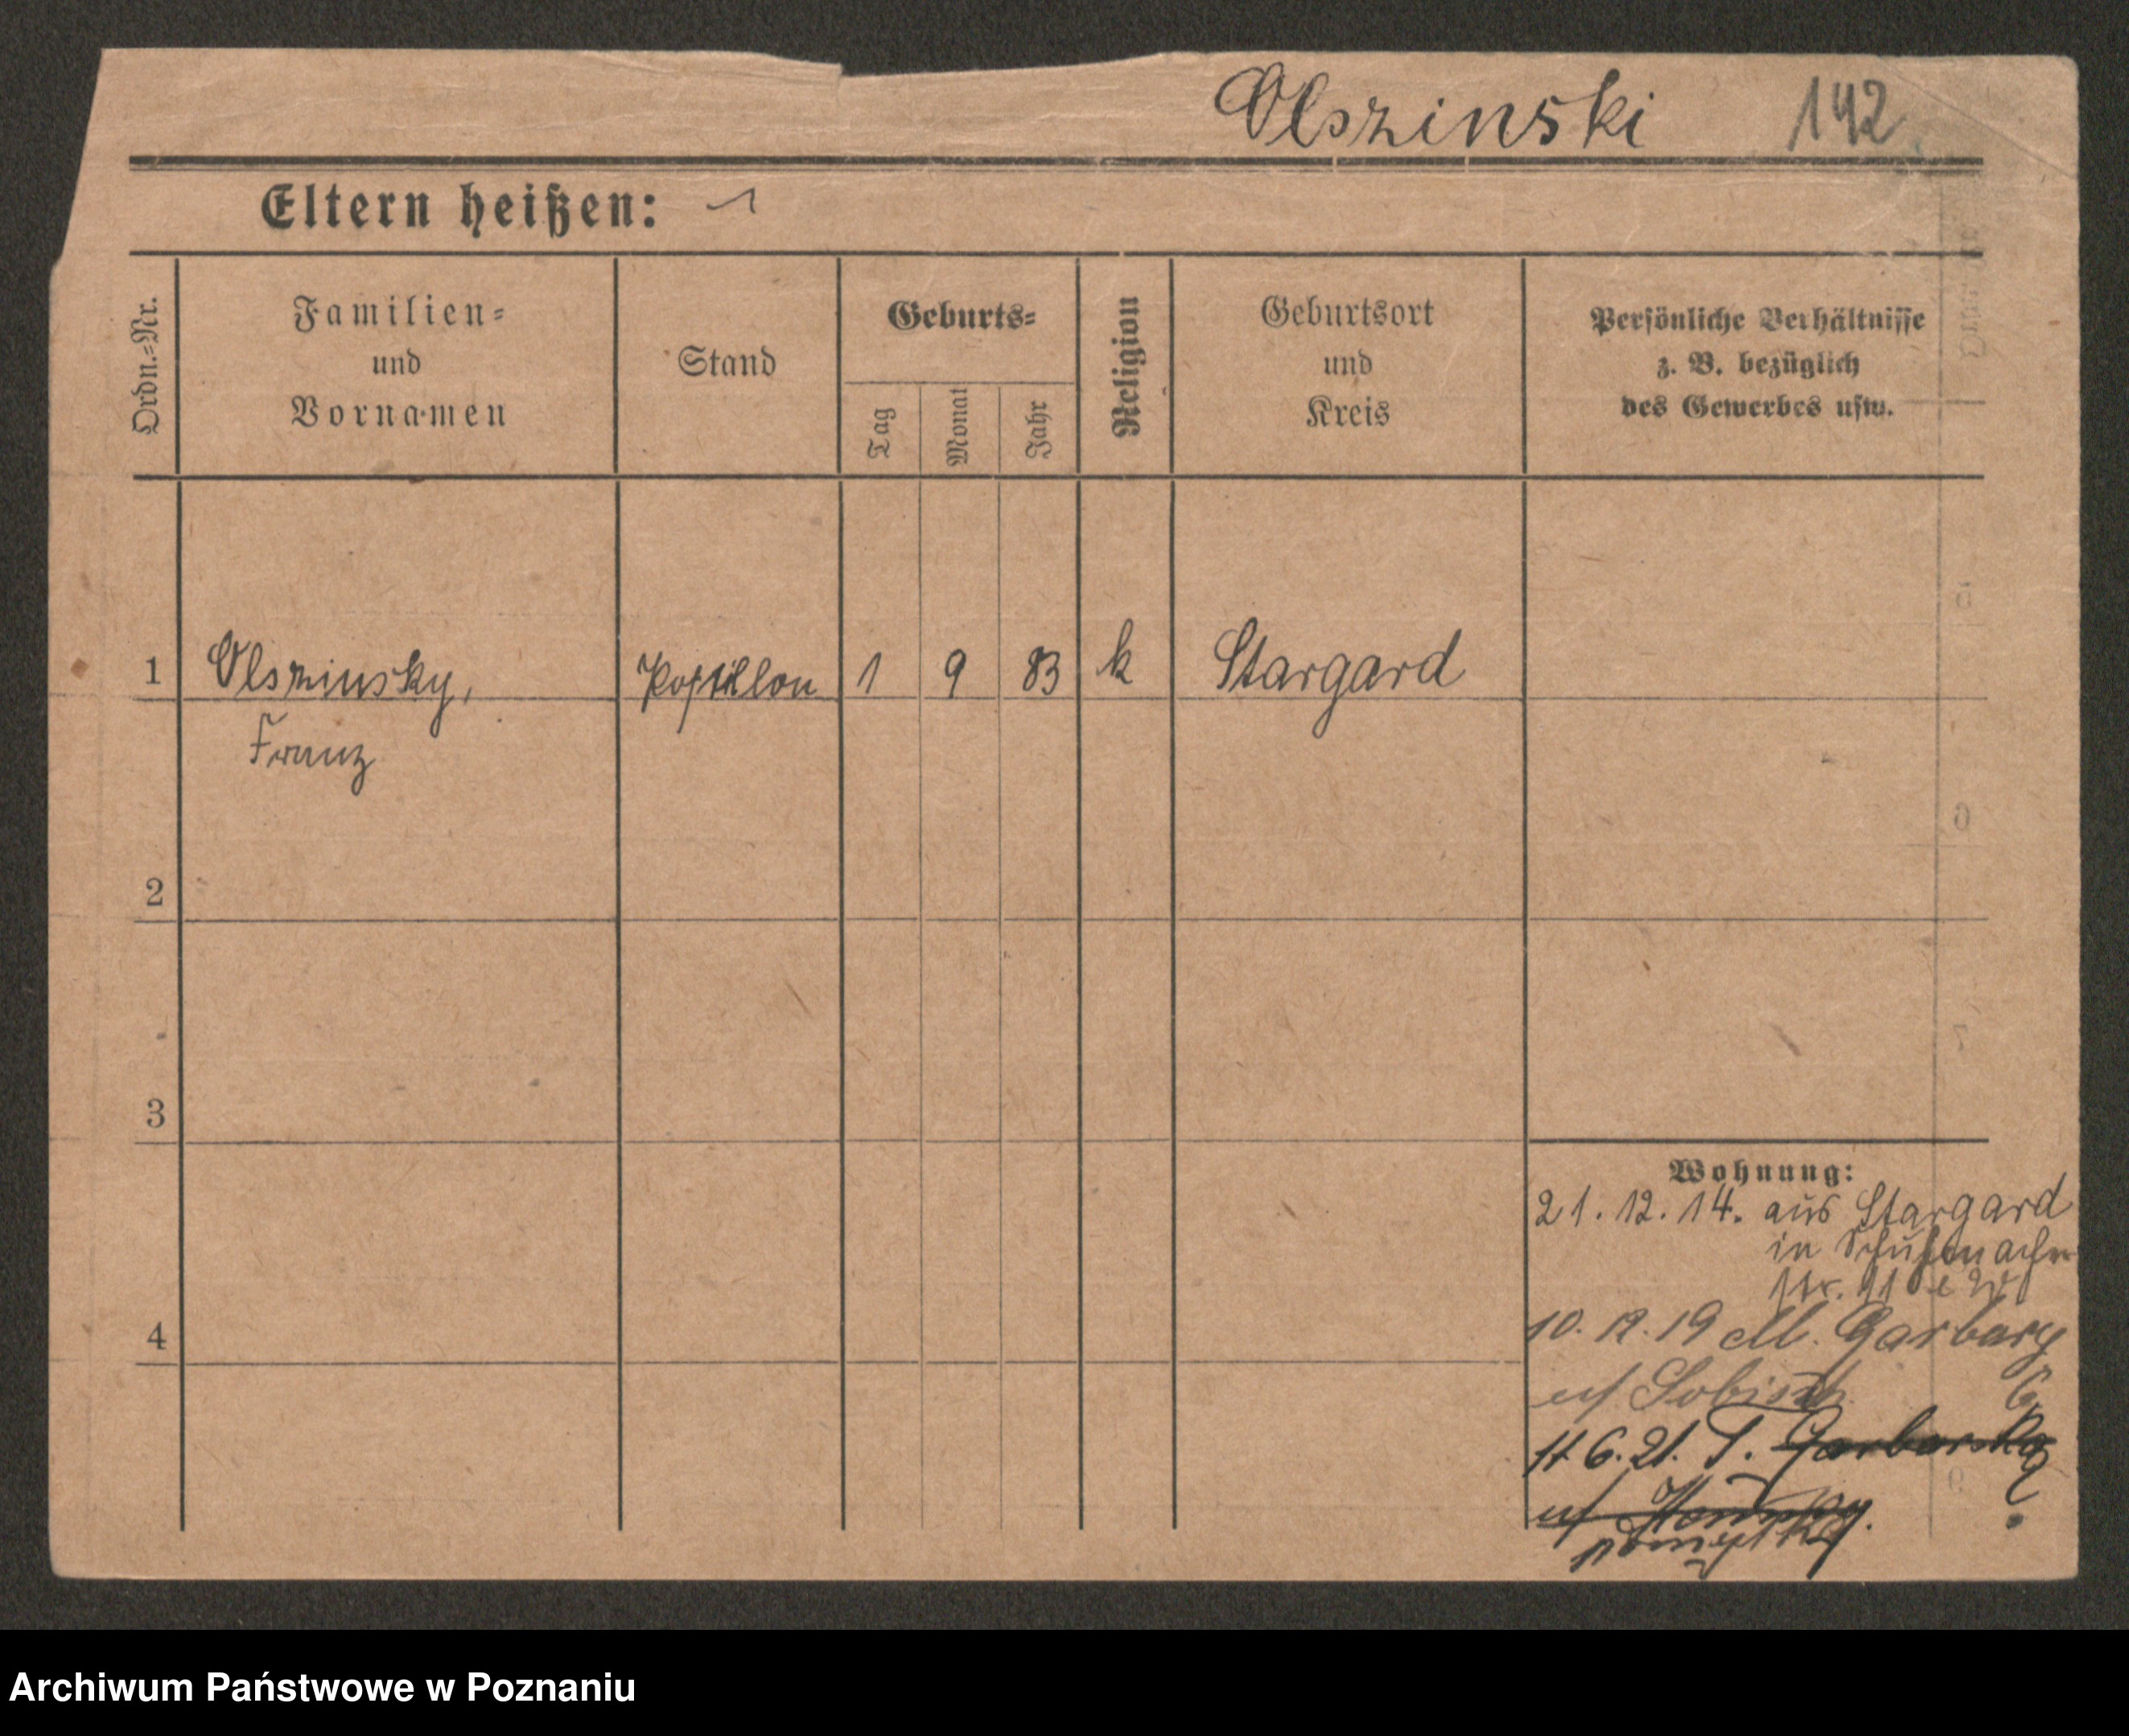 Olszinski 142
Eltern heißen:
Ordn.=Nr.
Familien=
und
Vornamen
Stand
Geburts=
Tag
Monat
Jahr
Religion
Geburtsort
und
Kreis
Persönliche Verhältnisse
z. B. bezüglich
des Gewerbes usw.
1 Olszinsky, Postillon 1 9 83 k Stargard
Franz
2
3
4
Wohnung:
21. 12. 14. aus Stargard
in Schuhmacher
str. 11
10. 12. 19 M. Garbary
u/ Sobisch 6
11 6. 21. T. Garbarska
u/
pomyłka
?
Archiwum Państwowe w Poznaniu